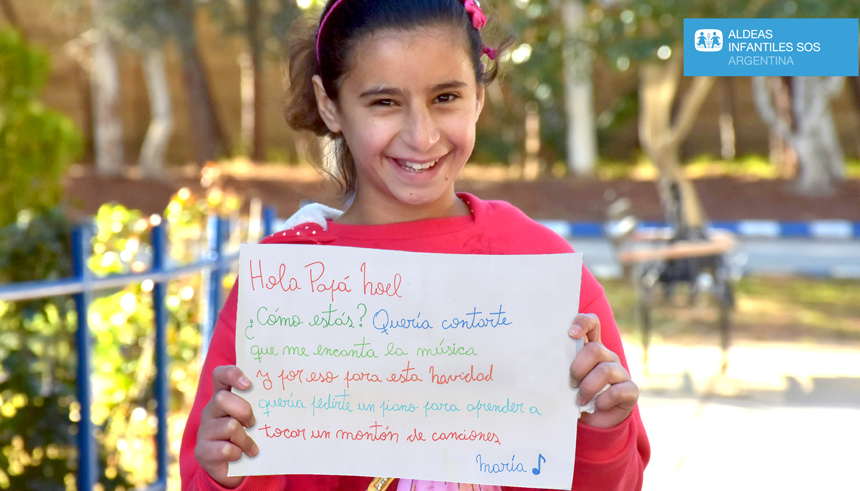 ALDEAS
INFANTILES SOS
ARGENTINA
Hola Papá Noel
¿Cómo estás? Quería contarte
que me encanta la música
y por eso para esta navidad
quería pedirte un piano para aprender a
tocar un montón de canciones
María